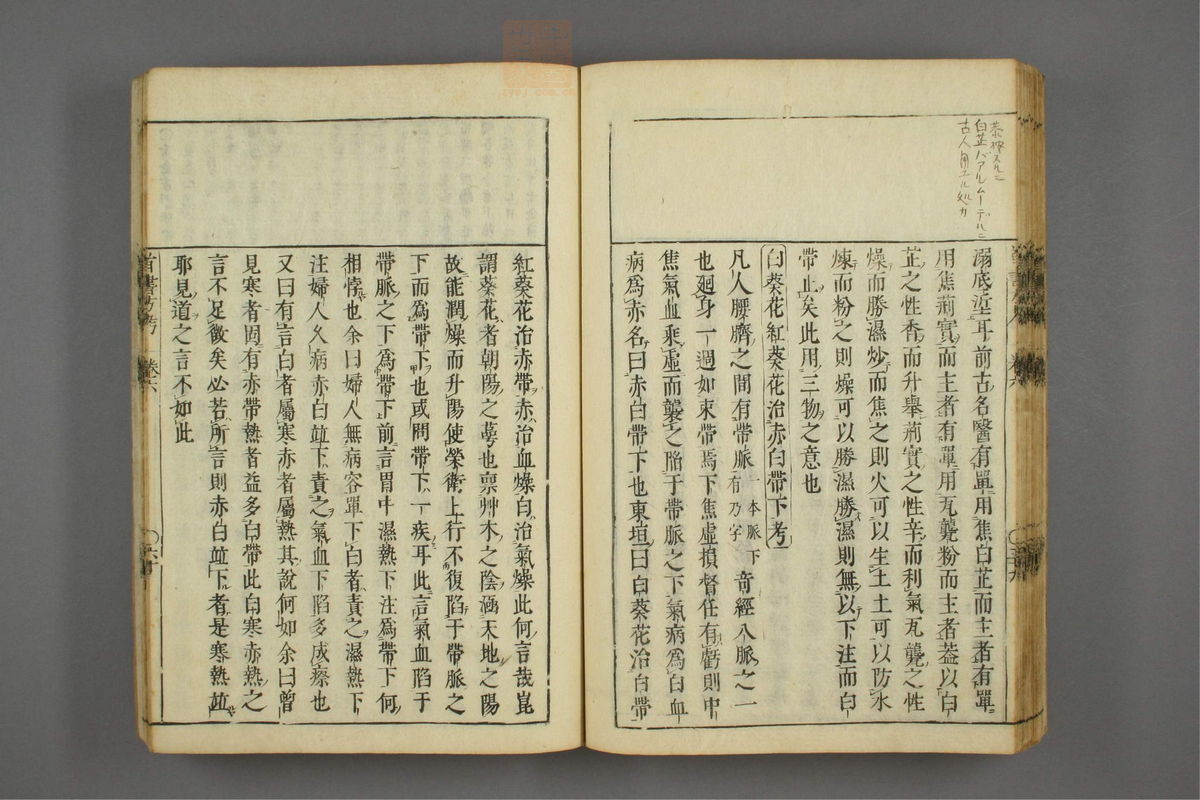 溺底㘴耳前古名醫有單用焦白芷而主者有單
用焦荊實而主者有單用瓦甃粉而主者葢以白
芷之性香而升舉荊實之性辛而利氣瓦甃之性
燥而勝濕炒而焦之則火可以生土土可以防水
煉而粉之則燥可以勝濕勝濕則無以下注而白
帶止矣此用三物之意也
白葵花紅葵花治赤白帶下考
凡人腰臍之間有帶脈一本脈下有乃字奇經八脈之一
也廻身一週如束帶焉下焦虛損督任有虧則中
焦氣血乘虛而襲之陷于帶脈之下氣病爲白血
病爲赤名曰赤白帶下也東垣曰白葵花治白帶
紅葵花治赤帶赤治血燥白治氣燥此何言哉崑
謂葵花者朝陽之蕚也稟艸木之陰涵天地之陽
故能潤燥而升陽使榮衛上行不復陷于帶脈之
下而爲帶下也或問帶下一疾耳此言氣血陷于
帶脈之下爲帶下前言胃中濕熱下注爲帶下何
相悖也余曰婦人無病容單下白者責之濕熱下
注婦人久病赤白竝下責之氣血下陷多成瘵也
又曰有言白者屬寒赤者屬熱其說何如余曰曾
見寒者固有赤帶熱者益多白帶此白寒赤熱之
言不足徵矣必若所言則赤白竝下者是寒熱竝
耶見道之言不如此
白芷バアルムーデルニ
古人用ユル処カ
首書方考 卷六